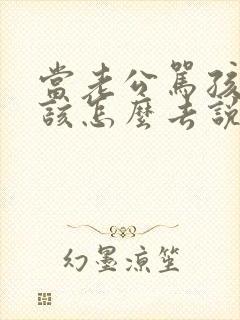 當老公罵孩
該怎麼去說
幻墨涼笙